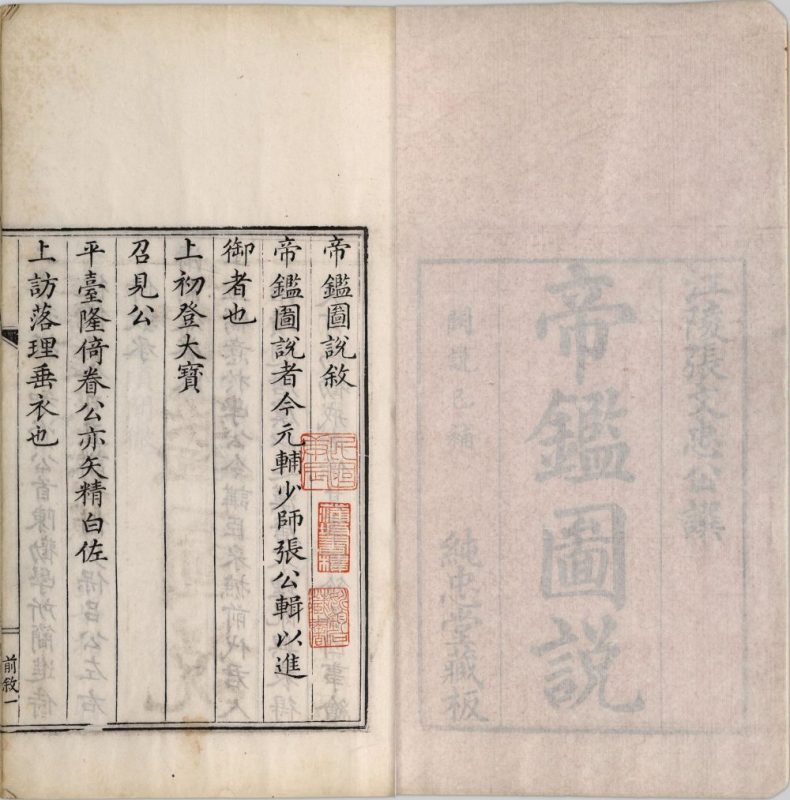 江陵張文忠公譔
帝鑑圖說
純忠堂藏板
帝鑑圖說敘
帝鑑圖說者今元輔少師張公輯以進
御者也
上初登大寶
召見公
平臺隆倚眷公亦矢精白佐
上訪落理垂衣也
前敘一